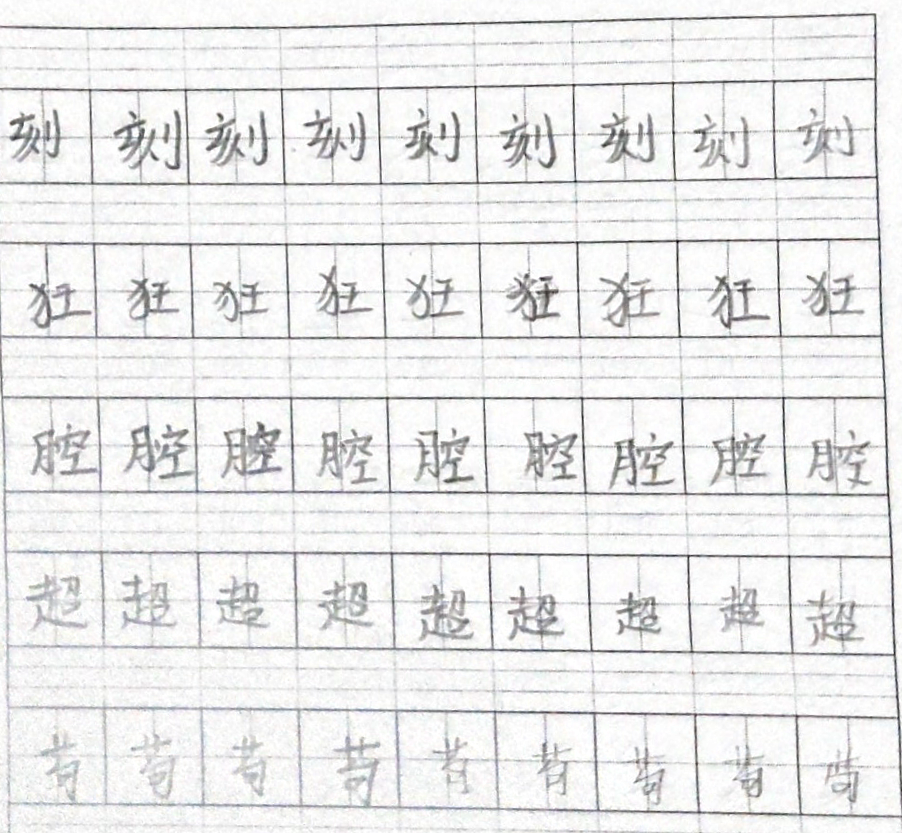 刻刻刻刻刻刻刻刻刻
狂狂狂狂狂狂狂狂狂
腔腔腔腔腔腔腔腔腔
超超超超超超超超超
苟苟苟苟苟苟苟苟苟